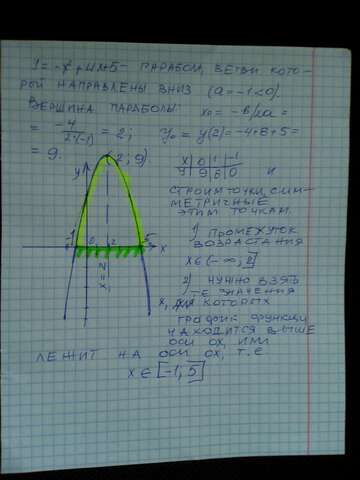 y = -x² + 4x + 5 - ПАРАБОЛ, ВЕТВИ КОТО-
РОЙ НАПРАВЛЕНЫ ВНИЗ (a = -1 < 0).
ВЕРШИНА ПАРАБОЛЫ: x₀ = -b/2a =
= -4/2·(-1) = 2; y₀ = y(2) = -4+8+5 =
= 9.
(2; 9)
y
x 0 1 -1
y 9 8 0 и
СТРОИМ ТОЧКИ, СИМ-
МЕТРИЧНЫЕ
ЭТИМ ТОЧКАМ.
-1 0 2 5 x
x = 2
1) ПРОМЕЖУТОК
ВОЗРАСТАНИЯ
x ∈ (-∞; 2]
2) НУЖНО ВЗЯТЬ
ТЕ ЗНАЧЕНИЯ
x, ДЛЯ КОТОРЫХ
ГРАФИК ФУНКЦИ
НАХОДИТСЯ ВЫШЕ
ОСИ OX, ИЛИ
ЛЕЖИТ НА ОСИ OX, Т.Е
x ∈ [-1; 5]